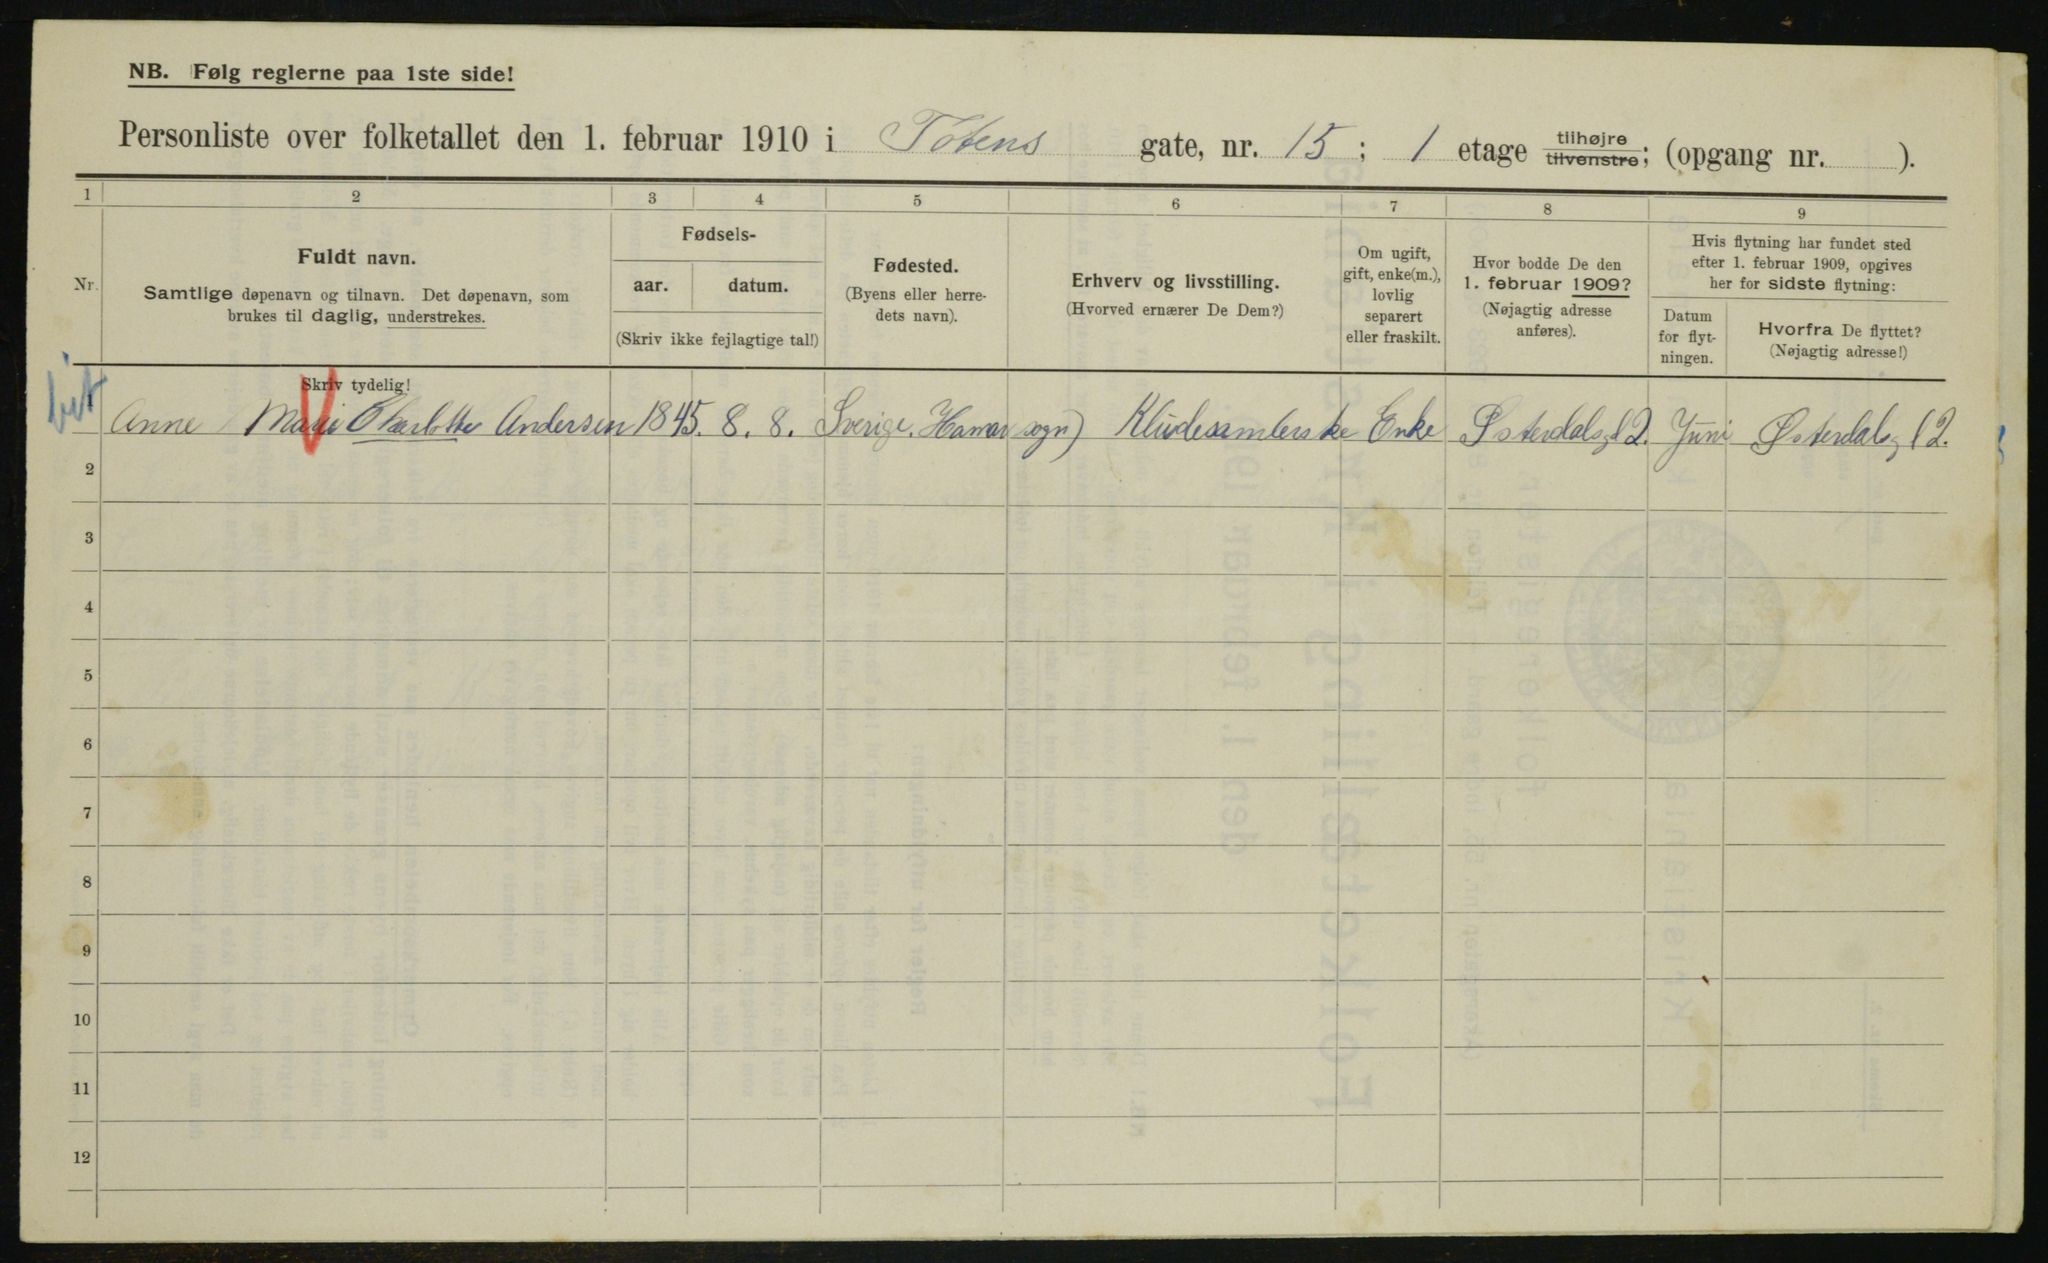 NB. Følg reglerne paa 1ste side!
Personliste over folketallet den 1. februar 1910 i Totens gate, nr. 15; 1 etage tilhøjre tilvenstre; (opgang nr. ).
1 2 3 4 5 6 7 8 9
Nr.
Fuldt navn.
Samtlige døpenavn og tilnavn. Det døpenavn, som
brukes til daglig, understrekes.
Skriv tydelig!
Fødsels-
aar. datum.
(Skriv ikke fejlagtige tal!)
Fødested.
(Byens eller herre-
dets navn).
Erhverv og livsstilling.
(Hvorved ernærer De Dem?)
Om ugift,
gift, enke(m.),
lovlig
separert
eller fraskilt.
Hvor bodde De den
1. februar 1909?
(Nøjagtig adresse
anføres).
Hvis flytning har fundet sted
efter 1. februar 1909, opgives
her for sidste flytning:
Datum
for flyt-
ningen.
Hvorfra De flyttet?
(Nøjagtig adresse!)
1 Anne Marie Charlotte Andersen 1845. 8. 8. Sverige. Hamar sogn) Kludesamlerske Enke Østerdalsg 12. Juni Østerdalsg 12.
2
3
4
5
6
7
8
9
10
11
12